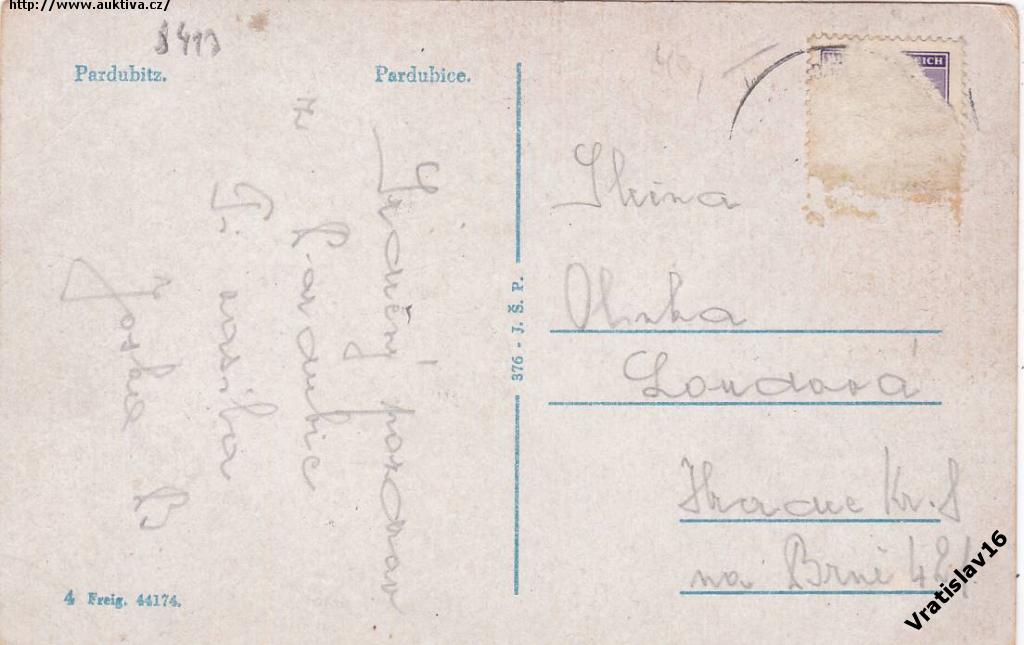 http://www.auktiva.cz/
Pardubitz.
Pardubice.
REICH
Srdečný pozdrav
z Pardubic
Ti zasílá
376 - J. Š. P.
Slečna
Olinka
Loudová
Hradec Kr.
na Brně 48
4 Freig. 44174.
Vratislav16